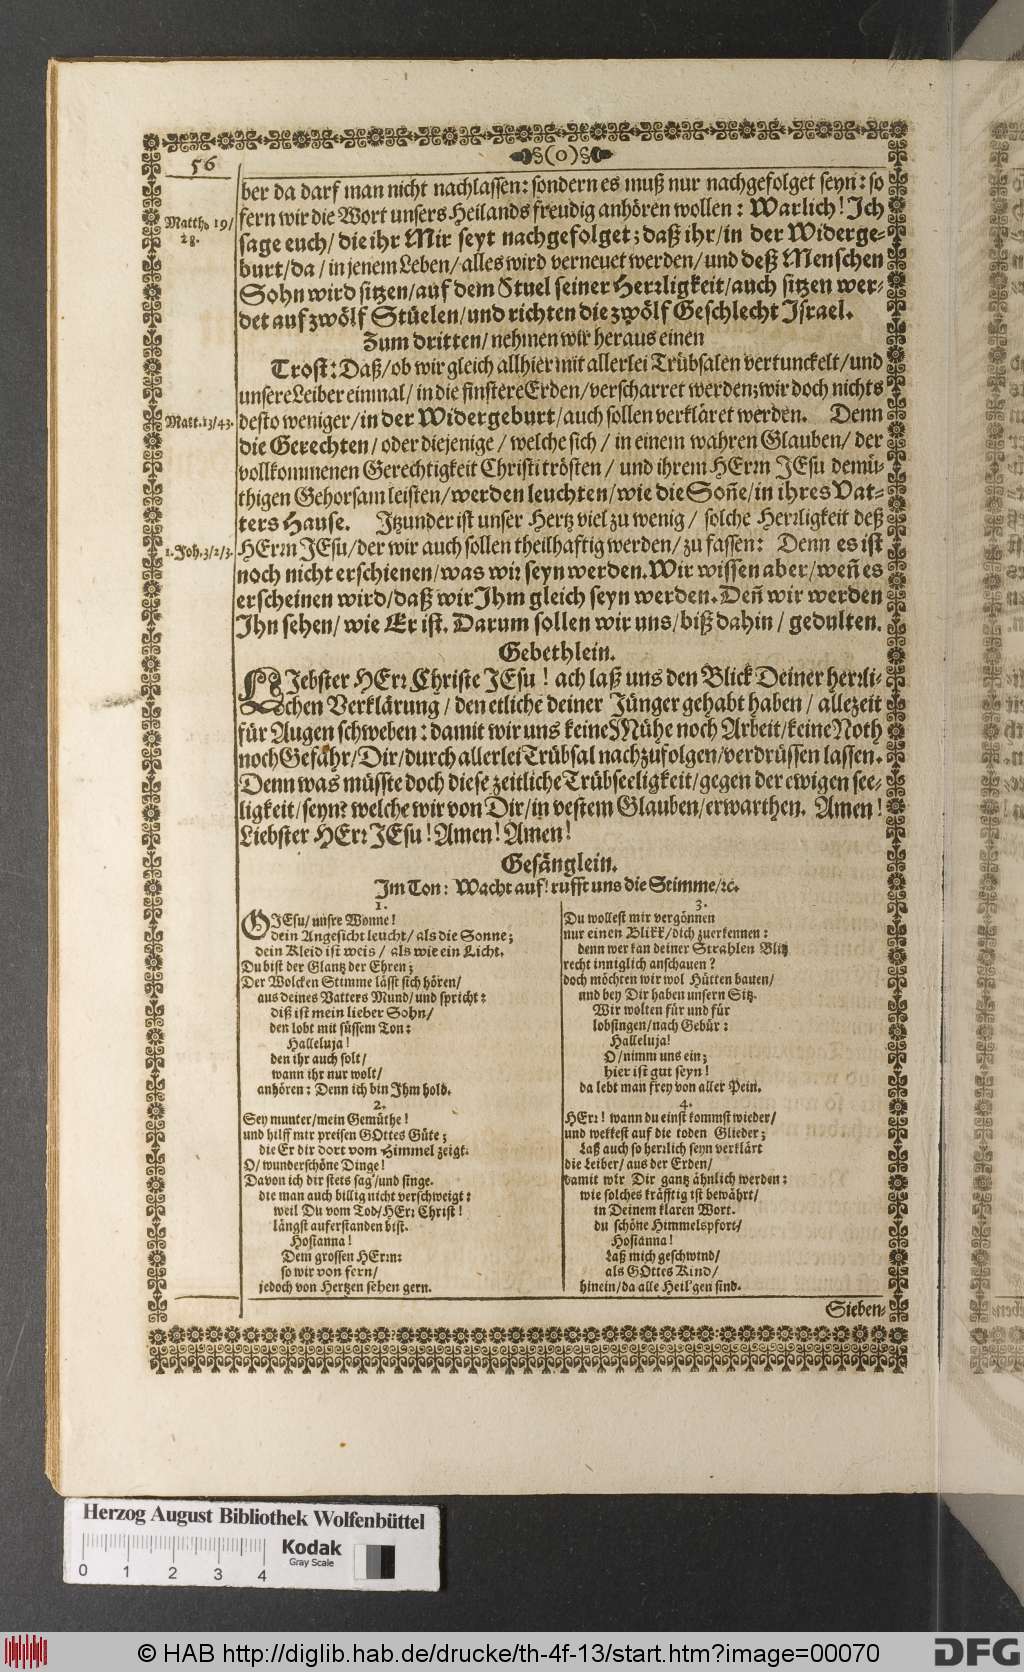 §(o)§
56
ber da darf man nicht nachlassen: sondern es muß nur nachgefolget seyn: so
fern wir die Wort unsers Heilands freudig anhören wollen: Warlich! Ich
Matth. 19/
28.
sage euch/ die ihr Mir seyt nachgefolget; daß ihr/ in der Widerge-
burt/ da/ in jenem Leben/ alles wird verneuet werden/ und deß Menschen
Sohn wird sitzen/ auf dem Stuel seiner Herꝛligkeit/ auch sitzen wer-
det auf zwölf Stüelen/ und richten die zwölf Geschlecht Israel.
Zum dritten/ nehmen wir heraus einen
Trost: Daß/ ob wir gleich allhier mit allerlei Trübsalen vertunckelt/ und
unsere Leiber einmal/ in die finstere Erden/ verscharret werden; wir doch nichts
Matt. 13/43.
desto weniger/ in der Widergeburt/ auch sollen verkläret werden. Denn
die Gerechten/ oder diejenige/ welche sich/ in einem wahren Glauben/ der
vollkommenen Gerechtigkeit Christi trösten/ und ihrem HErꝛn JEsu demü-
thigen Gehorsam leisten/ werden leuchten/ wie die Soñe/ in ihres Vat-
ters Hause. Itzunder ist unser Hertz viel zu wenig/ solche Herꝛligkeit deß
1. Joh. 3/2/3.
HErꝛn JEsu/ der wir auch sollen theilhaftig werden/ zu fassen: Denn es ist
noch nicht erschienen/ was wir seyn werden. Wir wissen aber/ weñ es
erscheinen wird/ daß wir Ihm gleich seyn werden. Deñ wir werden
Ihn sehen/ wie Er ist. Darum sollen wir uns/ biß dahin/ gedulten.
Gebethlein.
LJebster HErꝛ Christe JEsu! ach laß uns den Blick Deiner herꝛli-
chen Verklärung/ den etliche deiner Jünger gehabt haben/ allezeit
für Augen schweben: damit wir uns keine Mühe noch Arbeit/ keine Noth
noch Gefahr/ Dir/ durch allerlei Trübsal nachzufolgen/ verdrüssen lassen.
Denn was müsste doch diese zeitliche Trübseeligkeit/ gegen der ewigen see-
ligkeit/ seyn? welche wir von Dir/ in vestem Glauben/ erwarthen. Amen!
Liebster HErꝛ JEsu! Amen! Amen!
Gesänglein.
Im Ton: Wacht auf! rufft uns die Stimme/ ꝛc.
1.
O JEsu/ unsre Wonne!
dein Angesicht leucht/ als die Sonne;
dein Kleid ist weis/ als wie ein Licht.
Du bist der Glantz der Ehren;
Der Wolcken Stimme lässt sich hören/
aus deines Vatters Mund/ und spricht:
diß ist mein lieber Sohn/
den lobt mit süssem Ton:
Halleluja!
den ihr auch solt/
wann ihr nur wolt/
anhören: Denn ich bin Ihm hold.
2.
Sey munter/ mein Gemüthe!
und hilff mir preisen GOttes Güte;
die Er dir dort vom Himmel zeigt.
O/ wunderschöne Dinge!
Davon ich dir stets sag'/ und singe.
die man auch billig nicht verschweigt:
weil Du vom Tod/ HErꝛ Christ!
längst auferstanden bist.
Hosianna!
Dem grossen HErꝛn:
so wir von fern/
jedoch von Hertzen sehen gern.
3.
Du wollest mir vergönnen
nur einen Blikk/ dich zuerkennen:
denn wer kan deiner Strahlen Blitz
recht inniglich anschauen?
doch möchten wir wol Hütten bauen/
und bey Dir haben unsern Sitz.
Wir wolten für und für
lobsingen/ nach Gebür:
Halleluja!
O/ nimm uns ein;
hier ist gut seyn!
da lebt man frey von aller Pein.
4.
HErꝛ! wann du einst kommst wieder/
und wekkest auf die toden Glieder;
Laß auch so herꝛlich seyn verklärt
die Leiber/ aus der Erden/
damit wir Dir gantz ähnlich werden:
wie solches kräfftig ist bewährt/
in Deinem klaren Wort.
du schöne Himmelspfort/
Hosianna!
Laß mich geschwind/
als GOttes Kind/
hinein/ da alle Heil'gen sind.
Sieben-
Herzog August Bibliothek Wolfenbüttel
0 1 2 3 4
Kodak
Gray Scale
© HAB http://diglib.hab.de/drucke/th-4f-13/start.htm?image=00070
DFG